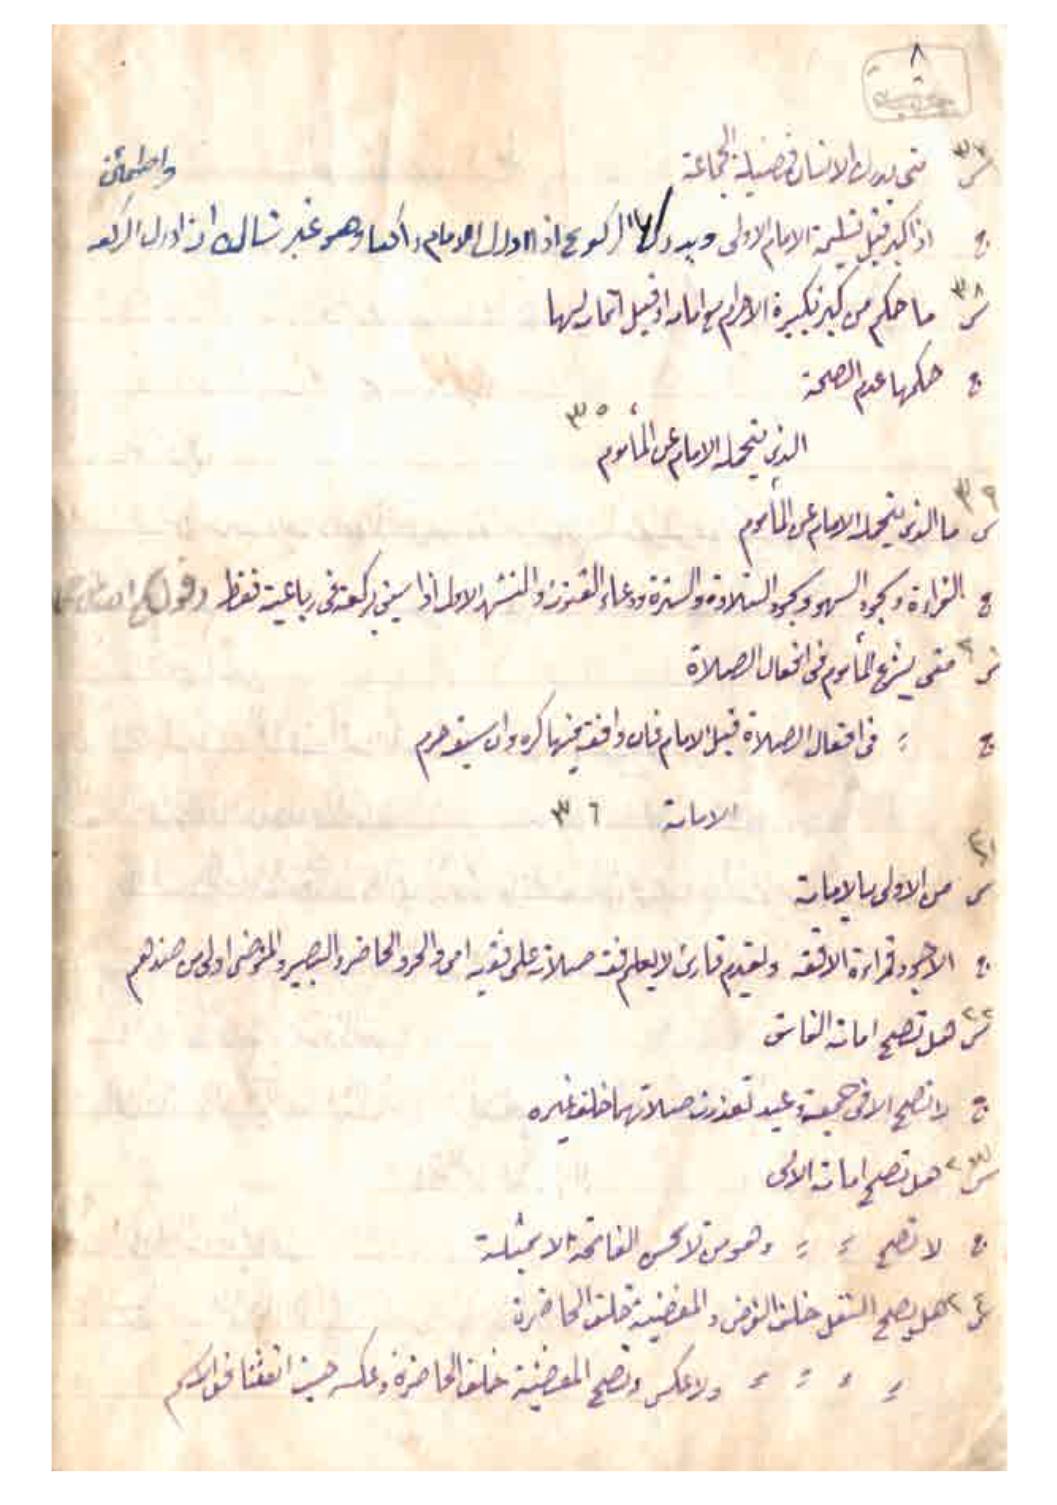 ٨
س ٣٧ متى يدرك الانسان فضيلة الجماعة
ج اذا كبر قبل تسليمة الامام الاولى ويدرك الركوع اذا ادرك الامام راكعا وهو غير شاك ان ادرك الركعة واطمأن
س ٣٨ ما حكم من كبر تكبيرة الاحرام مع امامه او قبل اتمامه لها
ج حكمها عدم الصحة
الذي يتحمله الامام عن المأموم ٣٥
س ٣٩ ما الذي يتحمله الامام عن المأموم
ج القراءة وسجود السهو وسجود التلاوة والسترة ودعاء القنوت والتشهد الاول اذا سبق بركعة في رباعية فقط وقول
س متى يشرع المأموم في افعال الصلاة
ج = في افعال الصلاة قبل الامام فان وافقه كره وان سبقه حرم
الامامة ٣٦
س ٤١ من الاولى بالامامة
ج الاجود قراءة الافقه ويقدم قارئ لا يعلم فقه صلاته على فقيه امي والحر والحاضر والبصير والمتوضئ اولى من ضدهم
س ٤٢ هل تصح امامة الفاسق
ج لا تصح الا في جمعة وعيد تعذرت صلاتهما خلف غيره
س ٤٣ هل تصح امامة الامي
ج لا تصح = = وهو من لا يحسن الفاتحة الا بمثله
س ٤٤ هل يصح النفل خلف الفرض والمقضية خلف الحاضرة
= = = = ولا عكس وتصح المقضية خلف الحاضرة وعكسه حيث اتفقتا في الاسم